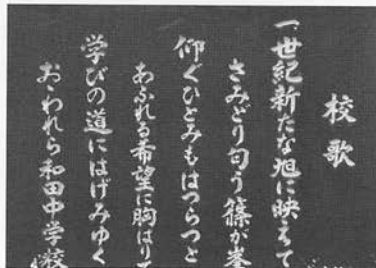 校歌
一、世紀新たな旭に映えて
さみどり匂う篠が峯
仰ぐひとみもはつらつと
あふれる希望に胸はりて
学びの道にはげみゆく
おゝわれら和田中学校